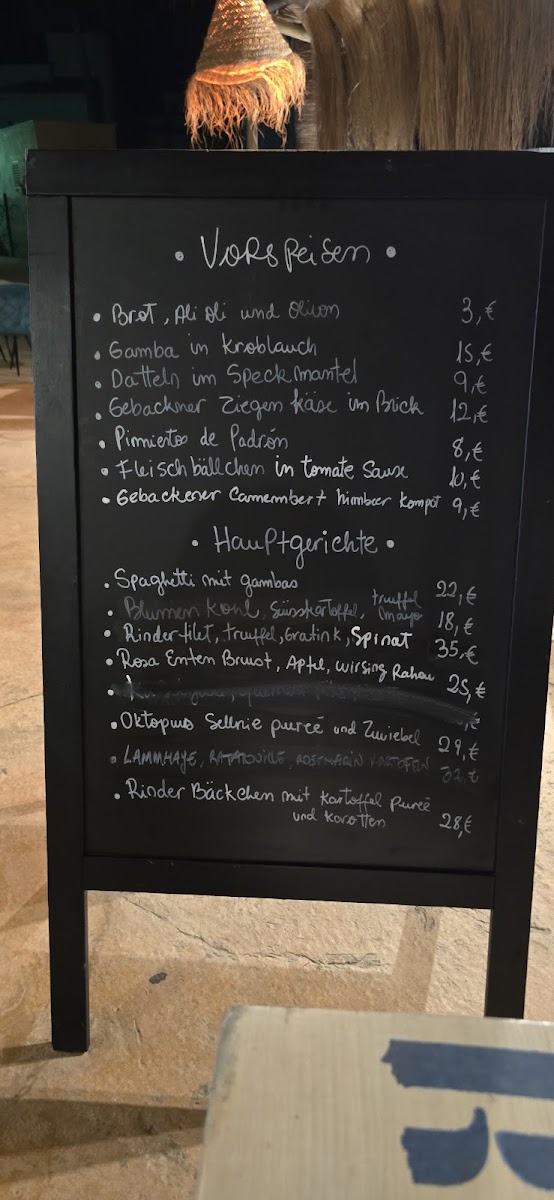 • Vorspeisen •
• Brot, Ali oli und Oliven 3,€
• Gamba in Knoblauch 15,€
• Datteln im Speck mantel 9,€
• Gebackner Ziegen käse im Brick 12,€
• Pimientos de Padrón 8,€
• Fleischbällchen in tomate Sause 10,€
• Gebackener Camembert himbeer kompot 9,€
• Hauptgerichte •
• Spaghetti mit gambas 22,€
• Blumen Kohl, Süsskartoffel, truffel mayo 18,€
• Rinderfilet, truffel, Gratink, Spinat 35,€
• Rosa Enten Brust, Apfel, wirsing Rahm 25,€
• Oktopus Sellrie pureé und Zwiebel 29,€
• LAMMHAXE, RATATOUILLE, ROSMARIN KARTOFELN 32,€
• Rinder Bäckchen mit Kartoffel pureé
und karotten 28,€